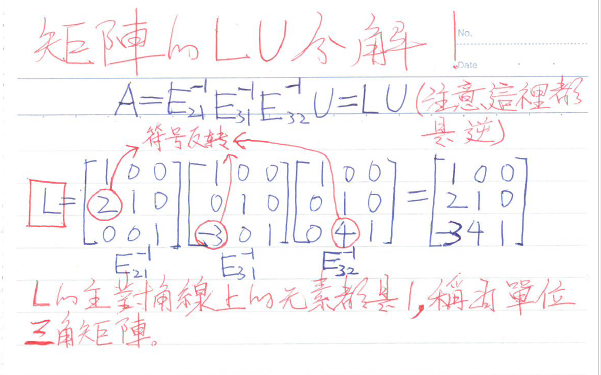 矩陣的LU分解!
No.
Date
A=E₂₁⁻¹E₃₁⁻¹E₃₂⁻¹U=LU(注意這裡都
是逆)
符号反转
L=[1 0 0][1 0 0][1 0 0]=[1 0 0]
[2 1 0][0 1 0][0 1 0] [2 1 0]
[0 0 1][-3 0 1][0 4 1] [-3 4 1]
E₂₁⁻¹ E₃₁⁻¹ E₃₂⁻¹
L的主對角線上的元素都是1,稱為單位
三角矩陣。